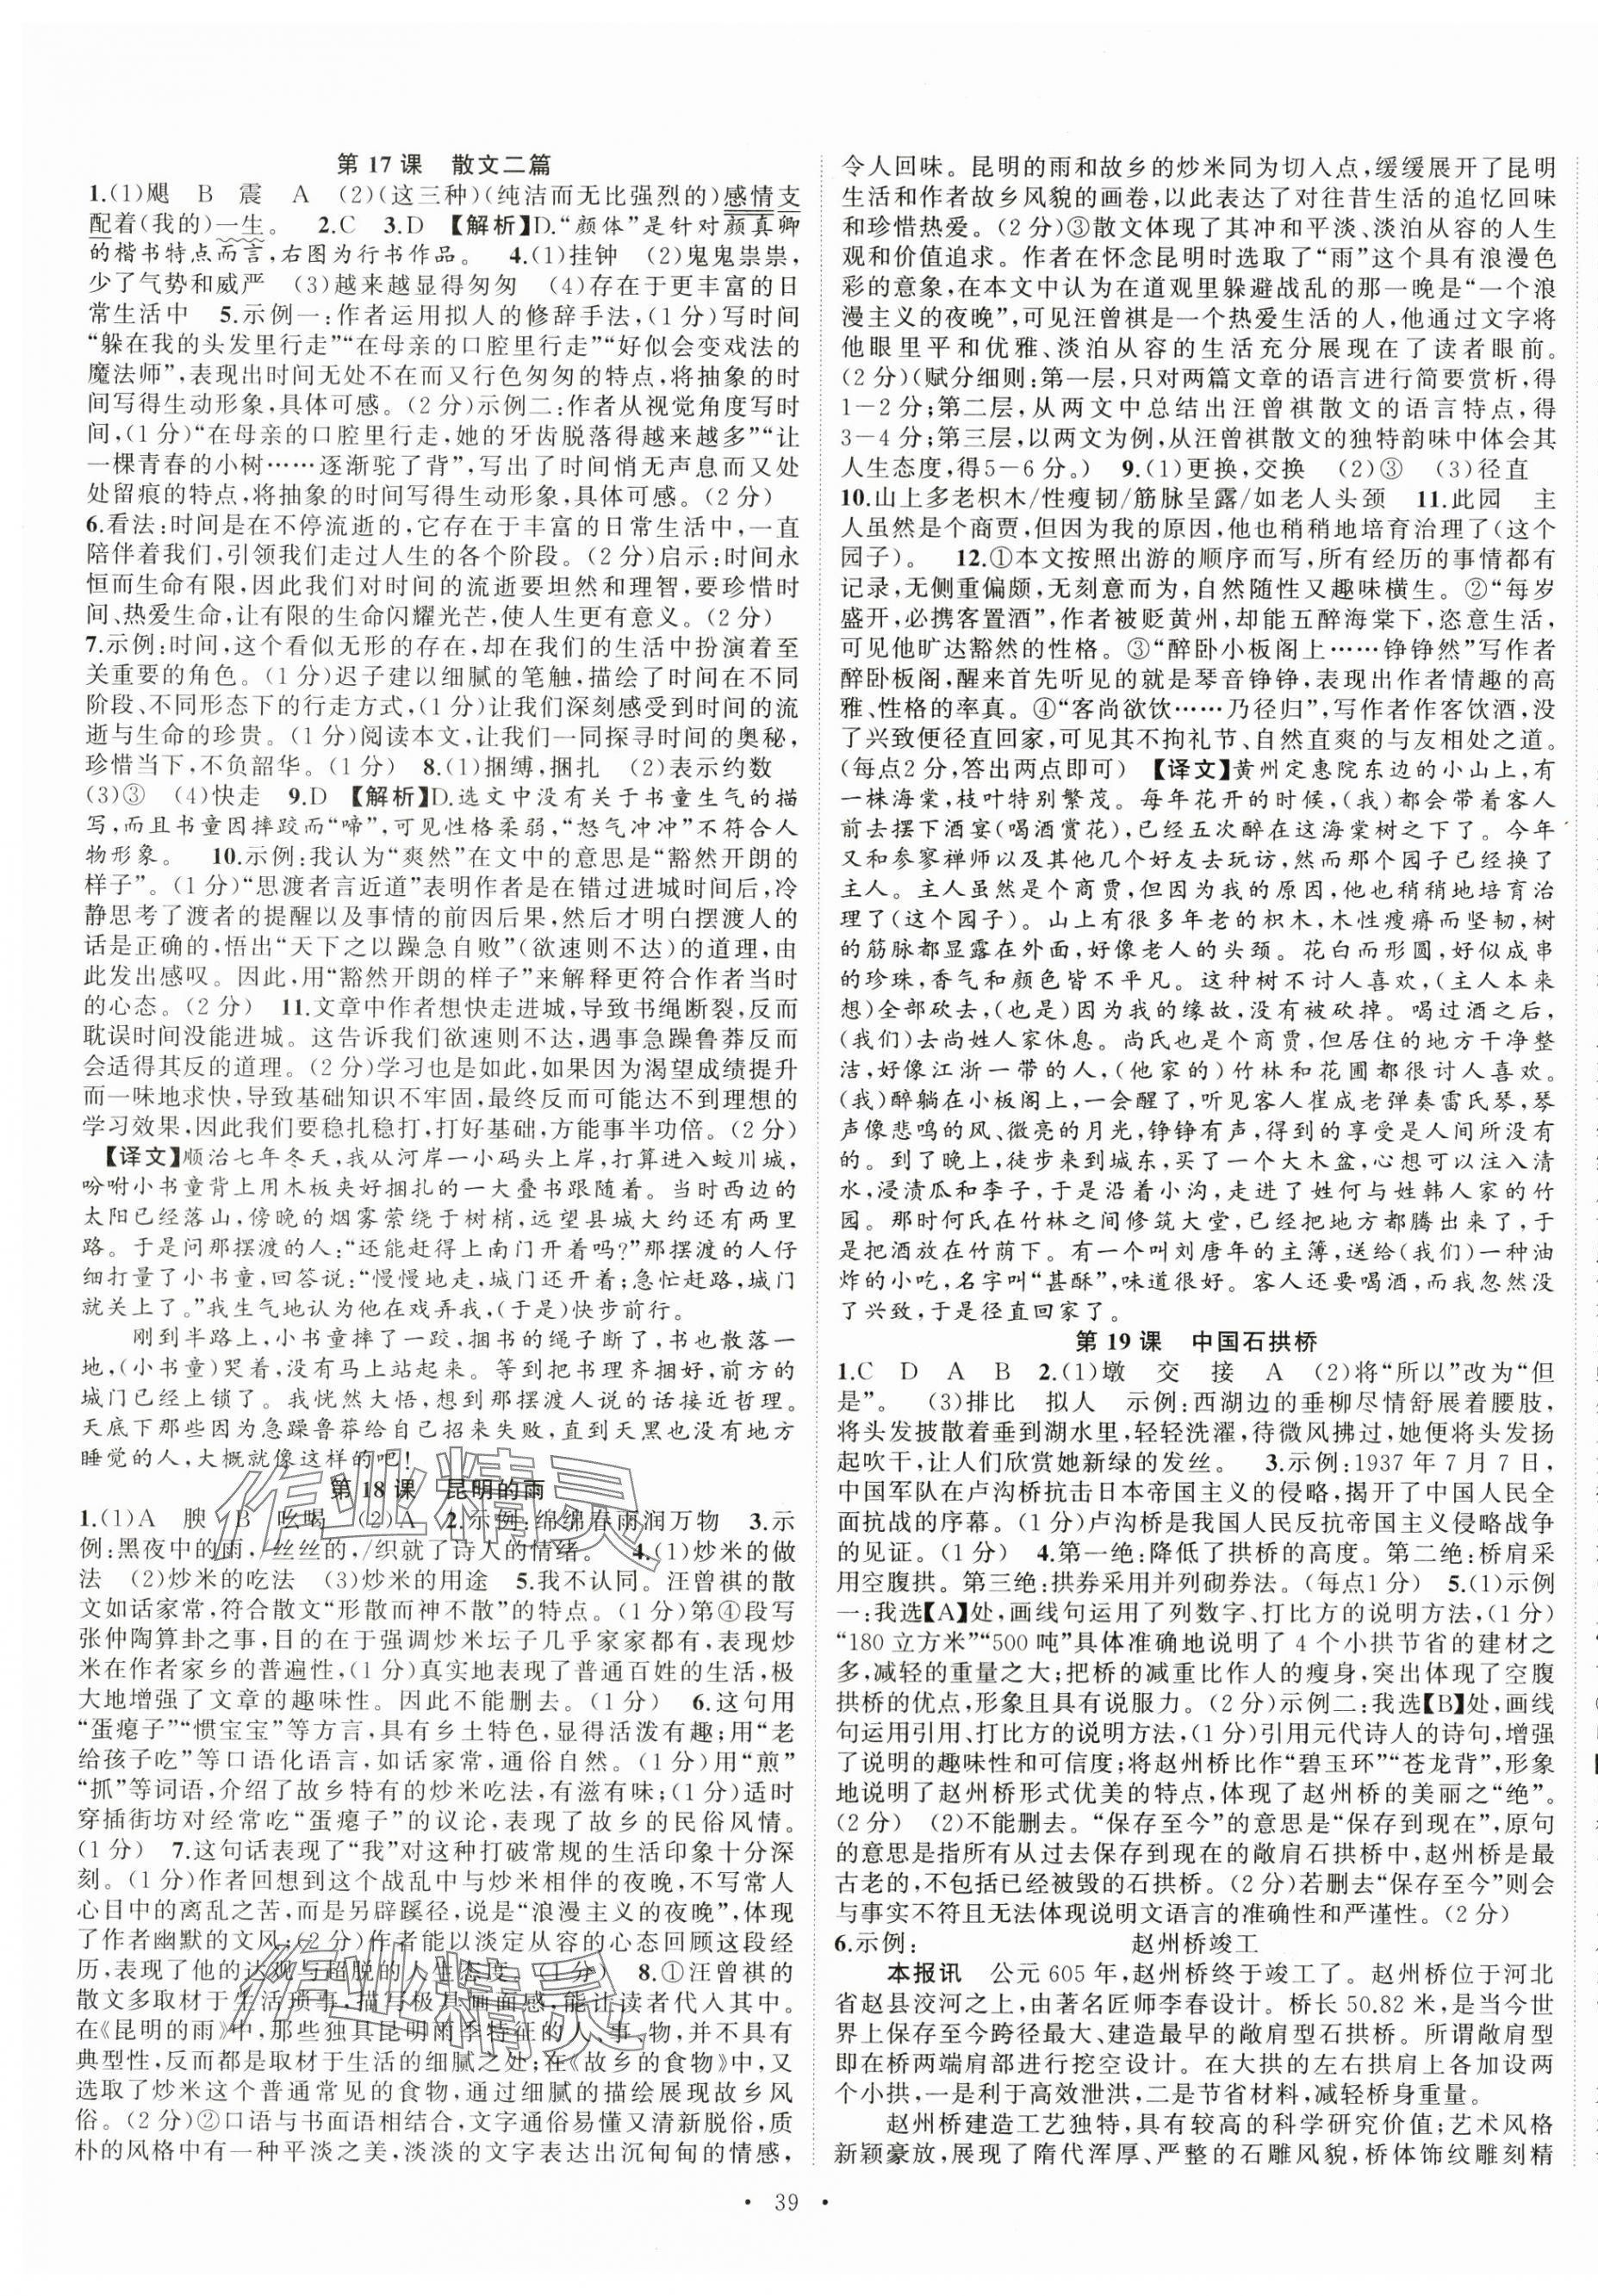 第 17 课　散文二篇
1.(1)飓　B　震　A　(2)(这三种)(纯洁而无比强烈的)感情支
配着(我的)一生。　2.C　3.D　【解析】D.“颜体”是针对颜真卿
的楷书特点而言,右图为行书作品。　4.(1)挂钟　(2)鬼鬼祟祟,
少了气势和威严　(3)越来越显得匆匆　(4)存在于更丰富的日
常生活中　5.示例一:作者运用拟人的修辞手法,(1分)写时间
“躲在我的头发里行走”“在母亲的口腔里行走”“好似会变戏法的
魔法师”,表现出时间无处不在而又行色匆匆的特点,将抽象的时
间写得生动形象,具体可感。(2分)示例二:作者从视觉角度写时
间,(1分)“在母亲的口腔里行走,她的牙齿脱落得越来越多”“让
一棵青春的小树……逐渐驼了背”,写出了时间悄无声息而又处
处留痕的特点,将抽象的时间写得生动形象,具体可感。(2分)
6.看法:时间是在不停流逝的,它存在于丰富的日常生活中,一直
陪伴着我们,引领我们走过人生的各个阶段。(2分)启示:时间永
恒而生命有限,因此我们对时间的流逝要坦然和理智,要珍惜时
间、热爱生命,让有限的生命闪耀光芒,使人生更有意义。(2分)
7.示例:时间,这个看似无形的存在,却在我们的生活中扮演着至
关重要的角色。(1分)迟子建以细腻的笔触,描绘了时间在不同
阶段、不同形态下的行走方式,(1分)让我们深刻感受到时间的流
逝与生命的珍贵。(1分)阅读本文,让我们一同探寻时间的奥秘,
珍惜当下,不负韶华。(1分)　8.(1)捆缚,捆扎　(2)表示约数
(3)③　(4)快走　9.D　【解析】D.选文中没有关于书童生气的描
写,而且书童因摔跤而“啼”,可见性格柔弱,“怒气冲冲”不符合人
物形象。　10.示例:我认为“爽然”在文中的意思是“豁然开朗的
样子”。(1分)“思渡者言近道”表明作者是在错过进城时间后,冷
静思考了渡者的提醒以及事情的前因后果,然后才明白摆渡人的
话是正确的,悟出“天下之以躁急自败”(欲速则不达)的道理,由
此发出感叹。因此,用“豁然开朗的样子”来解释更符合作者当时
的心态。(2分)　11.文章中作者想快走进城,导致书绳断裂,反而
耽误时间没能进城。这告诉我们欲速则不达,遇事急躁鲁莽反而
会适得其反的道理。(2分)学习也是如此,如果因为渴望成绩提升
而一味地求快,导致基础知识不牢固,最终反而可能达不到理想的
学习效果,因此我们要稳扎稳打,打好基础,方能事半功倍。(2分)
【译文】顺治七年冬天,我从河岸一小码头上岸,打算进入蛟川城,
吩咐小书童背上用木板夹好捆扎的一大叠书跟随着。当时西边的
太阳已经落山,傍晚的烟雾萦绕于树梢,远望县城大约还有两里
路。于是问那摆渡的人:“还能赶得上南门开着吗?”那摆渡的人仔
细打量了小书童,回答说:“慢慢地走,城门还开着;急忙赶路,城门
就关上了。”我生气地认为他在戏弄我,(于是)快步前行。
刚到半路上,小书童摔了一跤,捆书的绳子断了,书也散落一
地,(小书童)哭着,没有马上站起来。等到把书理齐捆好,前方的
城门已经上锁了。我恍然大悟,想到那摆渡人说的话接近哲理。
天底下那些因为急躁鲁莽给自己招来失败,直到天黑也没有地方
睡觉的人,大概就像这样的吧!
第 18 课　昆明的雨
1.(1)A　腴　B　吆喝　(2)A　2.示例:绵绵春雨润万物　3.示
例:黑夜中的雨,/丝丝的,/织就了诗人的情绪。　4.(1)炒米的做
法　(2)炒米的吃法　(3)炒米的用途　5.我不认同。汪曾祺的散
文如话家常,符合散文“形散而神不散”的特点。(1分)第④段写
张仲陶算卦之事,目的在于强调炒米坛子几乎家家都有,表现炒
米在作者家乡的普遍性,(1分)真实地表现了普通百姓的生活,极
大地增强了文章的趣味性。因此不能删去。(1分)　6.这句用
“蛋瘪子”“惯宝宝”等方言,具有乡土特色,显得活泼有趣;用“老
给孩子吃”等口语化语言,如话家常,通俗自然。(1分)用“煎”
“抓”等词语,介绍了故乡特有的炒米吃法,有滋有味;(1分)适时
穿插街坊对经常吃“蛋瘪子”的议论,表现了故乡的民俗风情。
(1分)　7.这句话表现了“我”对这种打破常规的生活印象十分深
刻。(1分)作者回想到这个战乱中与炒米相伴的夜晚,不写常人
心目中的离乱之苦,而是另辟蹊径,说是“浪漫主义的夜晚”,体现
了作者幽默的文风;(2分)作者能以淡定从容的心态回顾这段经
历,表现了他的达观与超脱的人生态度。(1分)　8.①汪曾祺的
散文多取材于生活琐事,描写极具画面感,能让读者代入其中。
在《昆明的雨》中,那些独具昆明雨季特征的人、事、物,并不具有
典型性,反而都是取材于生活的细腻之处;在《故乡的食物》中,又
选取了炒米这个普通常见的食物,通过细腻的描绘展现故乡风
俗。(2分)②口语与书面语相结合,文字通俗易懂又清新脱俗,质
朴的风格中有一种平淡之美,淡淡的文字表达出沉甸甸的情感,
令人回味。昆明的雨和故乡的炒米同为切入点,缓缓展开了昆明
生活和作者故乡风貌的画卷,以此表达了对往昔生活的追忆回味
和珍惜热爱。(2分)③散文体现了其冲和平淡、淡泊从容的人生
观和价值追求。作者在怀念昆明时选取了“雨”这个具有浪漫色
彩的意象,在本文中认为在道观里躲避战乱的那一晚是“一个浪
漫主义的夜晚”,可见汪曾祺是一个热爱生活的人,他通过文字将
他眼里平和优雅、淡泊从容的生活充分展现在了读者眼前。
(2分)(赋分细则:第一层,只对两篇文章的语言进行简要赏析,得
1－2分;第二层,从两文中总结出汪曾祺散文的语言特点,得
3－4分;第三层,以两文为例,从汪曾祺散文的独特韵味中体会其
人生态度,得5－6分。)　9.(1)更换,交换　(2)③　(3)径直
10.山上多老枳木/性瘦韧/筋脉呈露/如老人头颈　11.此园　主
人虽然是个商贾,但因为我的原因,他也稍稍地培育治理了(这个
园子)。　12.①本文按照出游的顺序而写,所有经历的事情都有
记录,无侧重偏颇,无刻意而为,自然随性又趣味横生。②“每岁
盛开,必携客置酒”,作者被贬黄州,却能五醉海棠下,恣意生活,
可见他旷达豁然的性格。③“醉卧小板阁上……铮铮然”写作者
醉卧板阁,醒来首先听见的就是琴音铮铮,表现出作者情趣的高
雅、性格的率真。④“客尚欲饮……乃径归”,写作者作客饮酒,没
了兴致便径直回家,可见其不拘礼节、自然直爽的与友相处之道。
(每点2分,答出两点即可)【译文】黄州定惠院东边的小山上,有
一株海棠,枝叶特别繁茂。每年花开的时候,(我)都会带着客人
前去摆下酒宴(喝酒赏花),已经五次醉在这海棠树之下了。今年
又和参寥禅师以及其他几个好友去玩访,然而那个园子已经换了
主人。主人虽然是个商贾,但因为我的原因,他也稍稍地培育治
理了(这个园子)。山上有很多年老的枳木,木性瘦瘠而坚韧,树
的筋脉都显露在外面,好像老人的头颈。花白而形圆,好似成串
的珍珠,香气和颜色皆不平凡。这种树不讨人喜欢,(主人本来
想)全部砍去,(也是)因为我的缘故,没有被砍掉。喝过酒之后,
(我们)去尚姓人家休息。尚氏也是个商贾,但居住的地方干净整
洁,好像江浙一带的人,(他家的)竹林和花圃都很讨人喜欢。
(我)醉躺在小板阁上,一会醒了,听见客人崔成老弹奏雷氏琴,琴
声像悲鸣的风、微亮的月光,铮铮有声,得到的享受是人间所没有
的。到了晚上,徒步来到城东,买了一个大木盆,心想可以注入清
水,浸渍瓜和李子,于是沿着小沟,走进了姓何与姓韩人家的竹
园。那时何氏在竹林之间修筑大堂,已经把地方都腾出来了,于
是把酒放在竹荫下。有一个叫刘唐年的主簿,送给(我们)一种油
炸的小吃,名字叫“甚酥”,味道很好。客人还要喝酒,而我忽然没
了兴致,于是径直回家了。
第 19 课　中国石拱桥
1.C　D　A　B　2.(1)墩　交　接　A　(2)将“所以”改为“但
是”。　(3)排比　拟人　示例:西湖边的垂柳尽情舒展着腰肢,
将头发披散着垂到湖水里,轻轻洗濯,待微风拂过,她便将头发扬
起吹干,让人们欣赏她新绿的发丝。　3.示例:1937年7月7日,
中国军队在卢沟桥抗击日本帝国主义的侵略,揭开了中国人民全
面抗战的序幕。(1分)卢沟桥是我国人民反抗帝国主义侵略战争
的见证。(1分)　4.第一绝:降低了拱桥的高度。第二绝:桥肩采
用空腹拱。第三绝:拱券采用并列砌券法。(每点1分)　5.(1)示例
一:我选【A】处,画线句运用了列数字、打比方的说明方法,(1分)
“180立方米”“500吨”具体准确地说明了4个小拱节省的建材之
多,减轻的重量之大;把桥的减重比作人的瘦身,突出体现了空腹
拱桥的优点,形象且具有说服力。(2分)示例二:我选【B】处,画线
句运用引用、打比方的说明方法,(1分)引用元代诗人的诗句,增强
了说明的趣味性和可信度;将赵州桥比作“碧玉环”“苍龙背”,形象
地说明了赵州桥形式优美的特点,体现了赵州桥的美丽之“绝”。
(2分)　(2)不能删去。“保存至今”的意思是“保存到现在”,原句
的意思是指所有从过去保存到现在的敞肩石拱桥中,赵州桥是最
古老的,不包括已经被毁的石拱桥。(2分)若删去“保存至今”则会
与事实不符且无法体现说明文语言的准确性和严谨性。(2分)
6.示例:　赵州桥竣工
本报讯　公元605年,赵州桥终于竣工了。赵州桥位于河北
省赵县洨河之上,由著名匠师李春设计。桥长50.82米,是当今世
界上保存至今跨径最大、建造最早的敞肩型石拱桥。所谓敞肩型
即在桥两端肩部进行挖空设计。在大拱的左右拱肩上各加设两
个小拱,一是利于高效泄洪,二是节省材料,减轻桥身重量。
赵州桥建造工艺独特,具有较高的科学研究价值;艺术风格
新颖豪放,展现了隋代浑厚、严整的石雕风貌,桥体饰纹雕刻精
· 39 ·
作业精灵
作业精灵